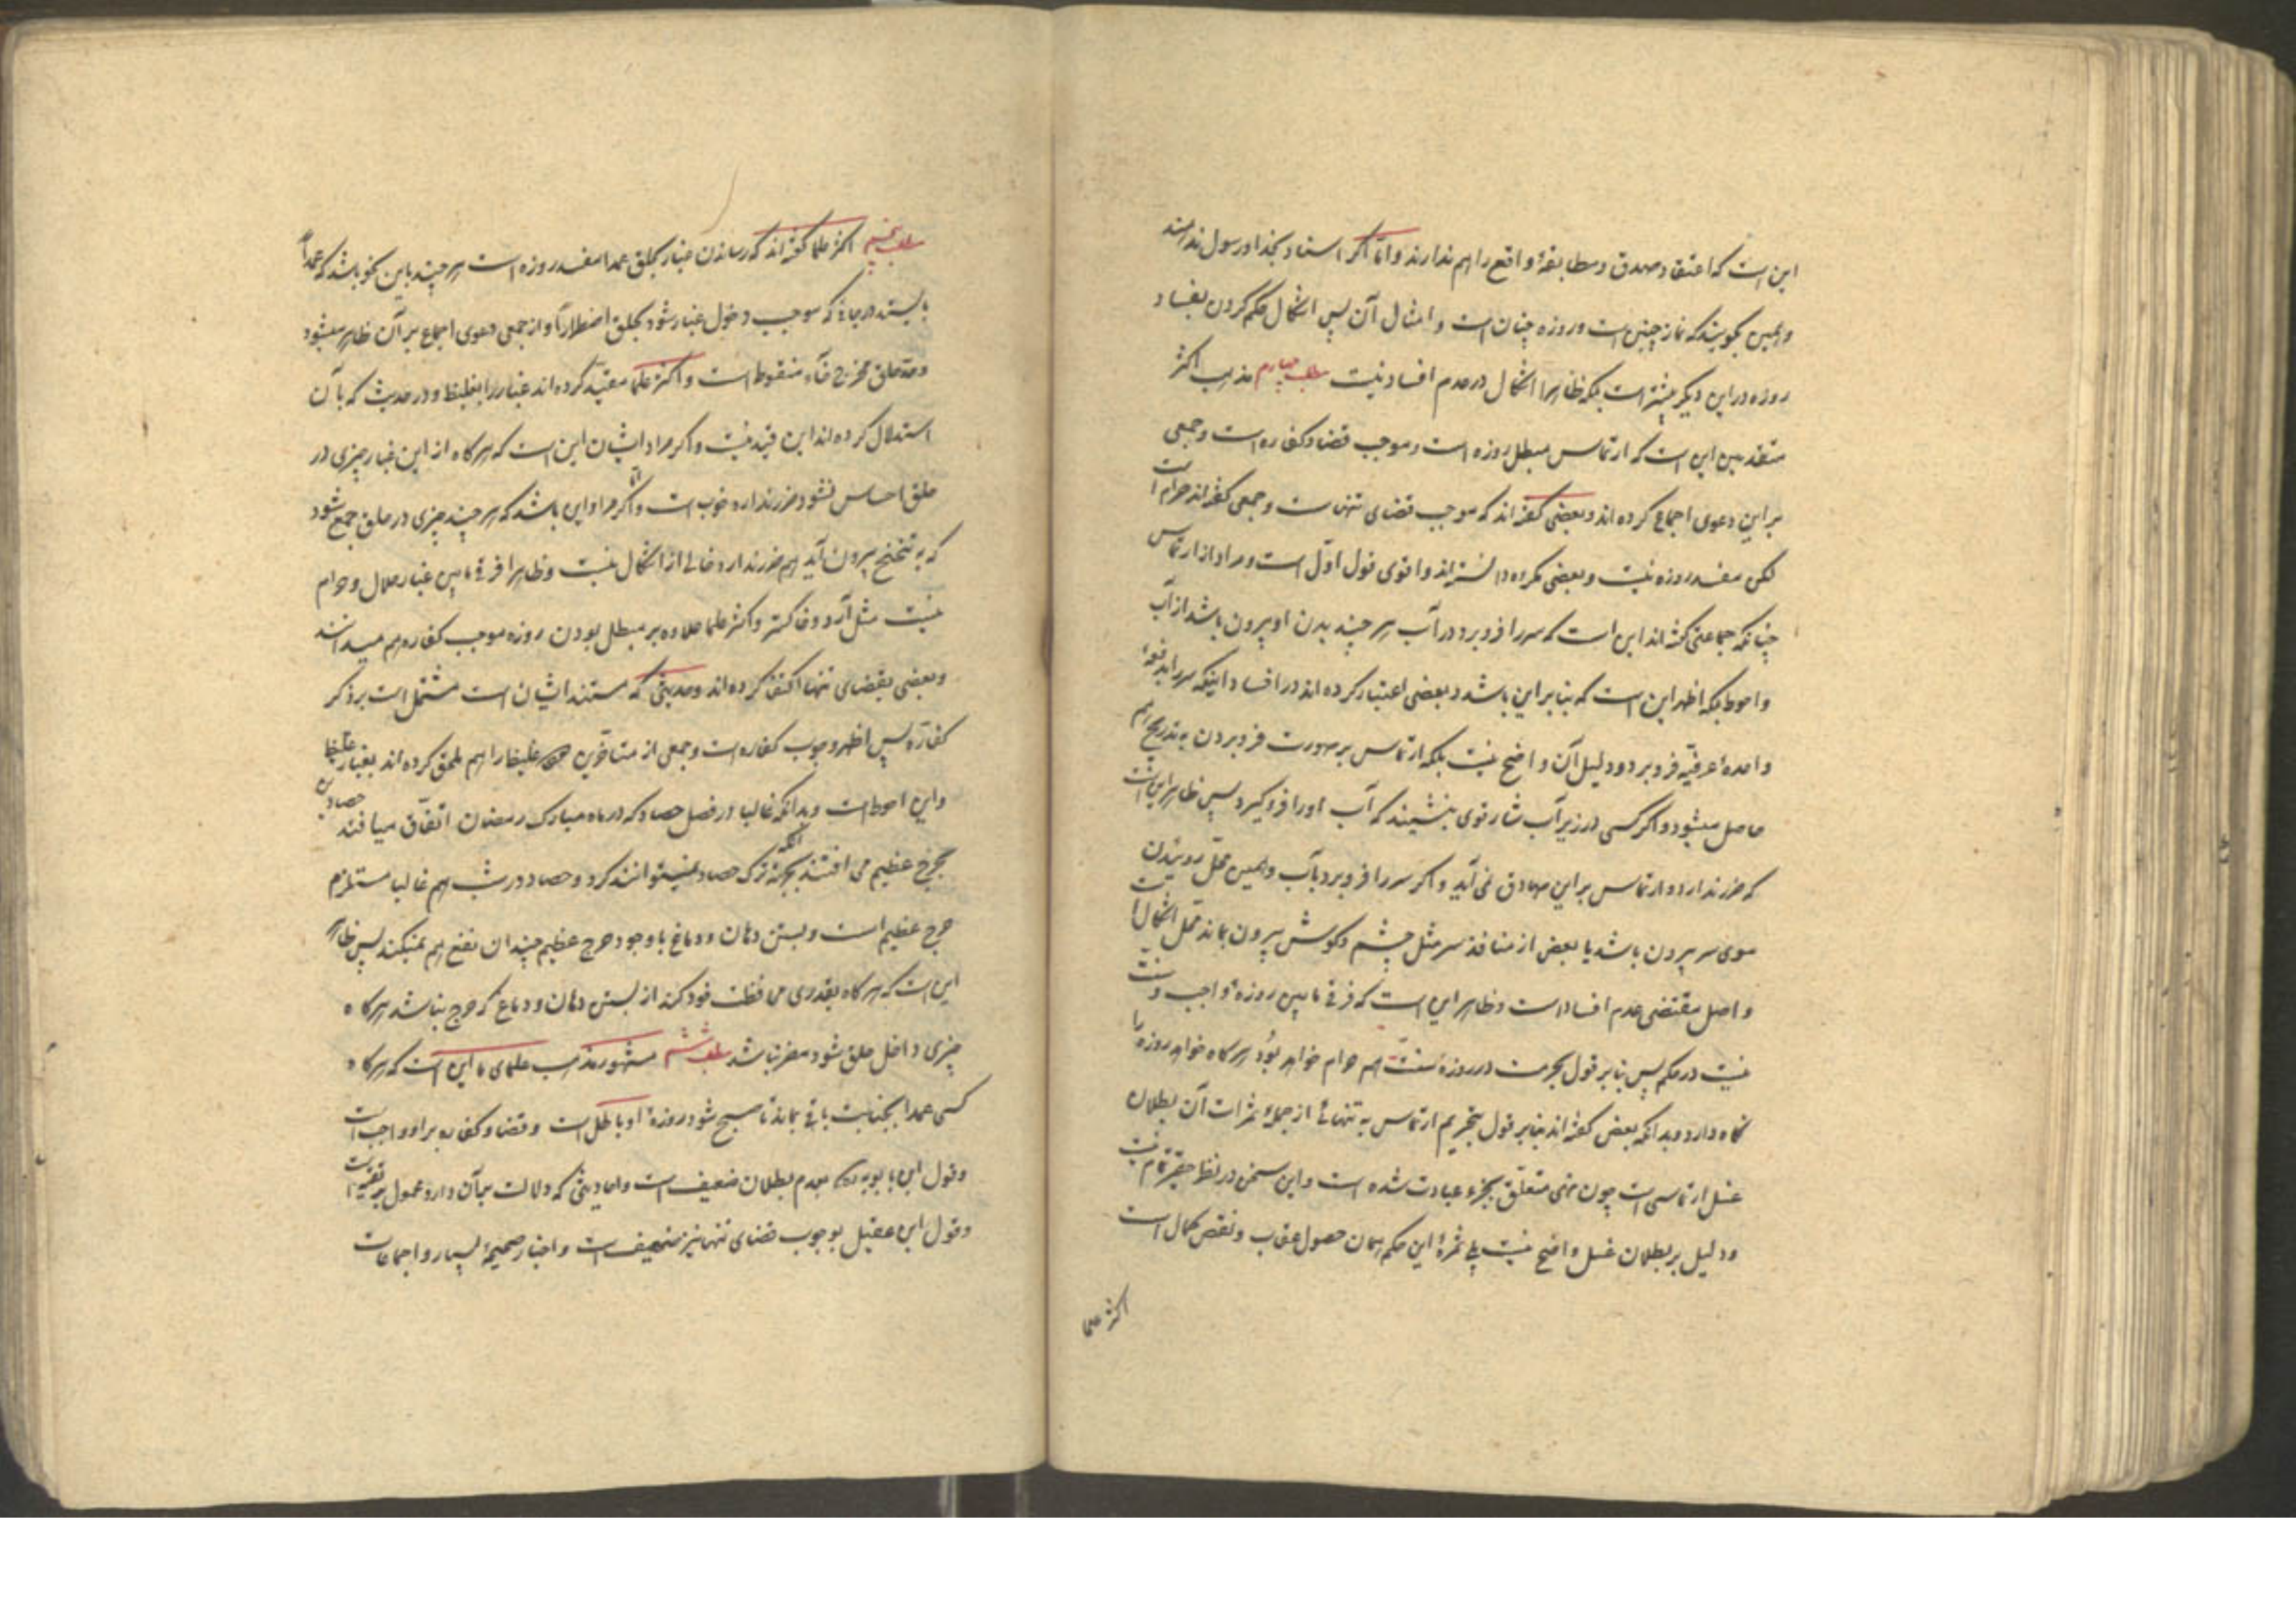 این است که اعتقاد صدق و مطابقهٔ واقع را هم ندارند و امّا اگر اسناد بخدا و رسول ندهند
و همین بگویند که نماز چنین است و روزه چنان است و امثال آن پس اشکال حکم کردن بفساد
روزه در این دیگر بیشتر است بلکه ظاهرا اشکال در عدم افساد نیست مطلب چهارم مذهب اکثر
متقدمین این است که ارتماس مبطل روزه است و موجب قضا و کفاره است و جمعی
بر این دعوی اجماع کرده اند و بعضی گفته اند که موجب قضای تنهاست و جمعی گفته اند حرام است
لکن مفسد روزه نیست و بعضی مکروه دانسته اند و اقوی قول اوّل است و مراد از ارتماس
چنانکه جماعتی گفته اند این است که سر را فرو برد در آب هر چند بدن او بیرون باشد از آب
و احوط بلکه اظهر این است که بنا بر این باشد و بعضی اعتبار کرده اند در افساد اینکه سر را بدفعهٔ
واحدهٔ عرفیّه فرو برد و دلیل آن واضح نیست بلکه ارتماس بر صورت فرو بردن به تدریج هم
حاصل میشود و اگر کسی در زیر آب شار قوی بنشیند که آب او را فرو گیرد پس ظاهر این است
که ضرر ندارد و ارتماس بر این صادق نمی آید و اگر سر را فرو برد بآب و همین محلّ روئیدن
موی سر بیرون باشد یا بعض از منافذ سر مثل چشم و گوش بیرون بماند محل اشکال است
و اصل مقتضی عدم افساد است و ظاهر این است که فرقی مابین روزهٔ واجب و سنت
نیست در حکم پس بنا بر قول بحرمت در روزهٔ سنّت هم حرام خواهد بود هر گاه خواهد روزه را
نگاه دارد و بدانکه بعض گفته اند بنا بر قول بتحریم ارتماس به تنهائی از جملهٔ ثمرات آن بطلان
غسل ارتماسی است چون نهی متعلّق بجزء عبادت شده است و این سخن در نظر حقیر تمام نیست
و دلیل بر بطلان غسل واضح نیست بلی ثمرهٔ این حکم همان حصول عقاب و نقص کمال است
اکثر علما
مطلب پنجم اکثر علما گفته اند که رساندن غبار بحلق عمدا مفسد روزه است هر چند باین نحو باشد که عمداً
بایستد در جائی که موجب دخول غبار شود بحلق اضطراراً و از جمعی دعوی اجماع بر آن ظاهر میشود
و حد حلق مخرج خآء منقوط است و اکثر علما مقیّد کرده اند غبار را بغلیظ و در حدیث که بآن
استدلال کرده اند این قید نیست و اگر مراد ایشان این است که هر گاه از این غبار چیزی در
حلق احساس نشود ضرر ندارد خوب است و امّا اگر مراد این باشد که هر چند چیزی در حلق جمع شود
که به تنخنخ بیرون آید هم ضرر ندارد خالی از اشکال نیست و ظاهرا فرقی مابین غبار حلال و حرام
نیست مثل آرد و خاکستر و اکثر علما علاوه بر مبطل بودن روزه موجب کفاره هم میدانند
و بعضی بقضای تنها اکتفا کرده اند و حدیثی که مستند ایشان است مشتمل است بر ذکر
کفارّه پس اظهر وجوب کفاره است و جمعی از متأخّرین غلیظ را هم ملحق کرده اند بغبار
و این احوط است و بدانکه غالبا در فصل حصاد که در ماه مبارک رمضان اتّفاق میافتد حصادین
بحرج عظیم می افتند بجهة آنکه ترک حصاد نمیتوانند کرد و حصاد در شب هم غالبا مستلزم
حرج عظیم است و بستن دهان و دماغ با وجود حرج عظیم چندان نفع هم نمیکند پس ظاهر
این است که هر گاه بقدری محافظت خود کند از بستن دهان و دماغ که حرج نباشد هر گاه
چیزی داخل حلق شود مضر نباشد مطلب ششم مشهور مذهب علمای ما این است که هر گاه
کسی عمدا بجنابت باقی بماند تا صبح شود روزهٔ او باطل است و قضا و کفاره بر او واجب است
و قول ابن بابویه ره بعدم بطلان ضعیف است و احادیثی که دلالت بر آن دارد محمول بر تقیّه است
و قول ابن عقیل بوجوب قضای تنها نیز ضعیف است و اخبار صحیحهٔ بسیار و اجماعات